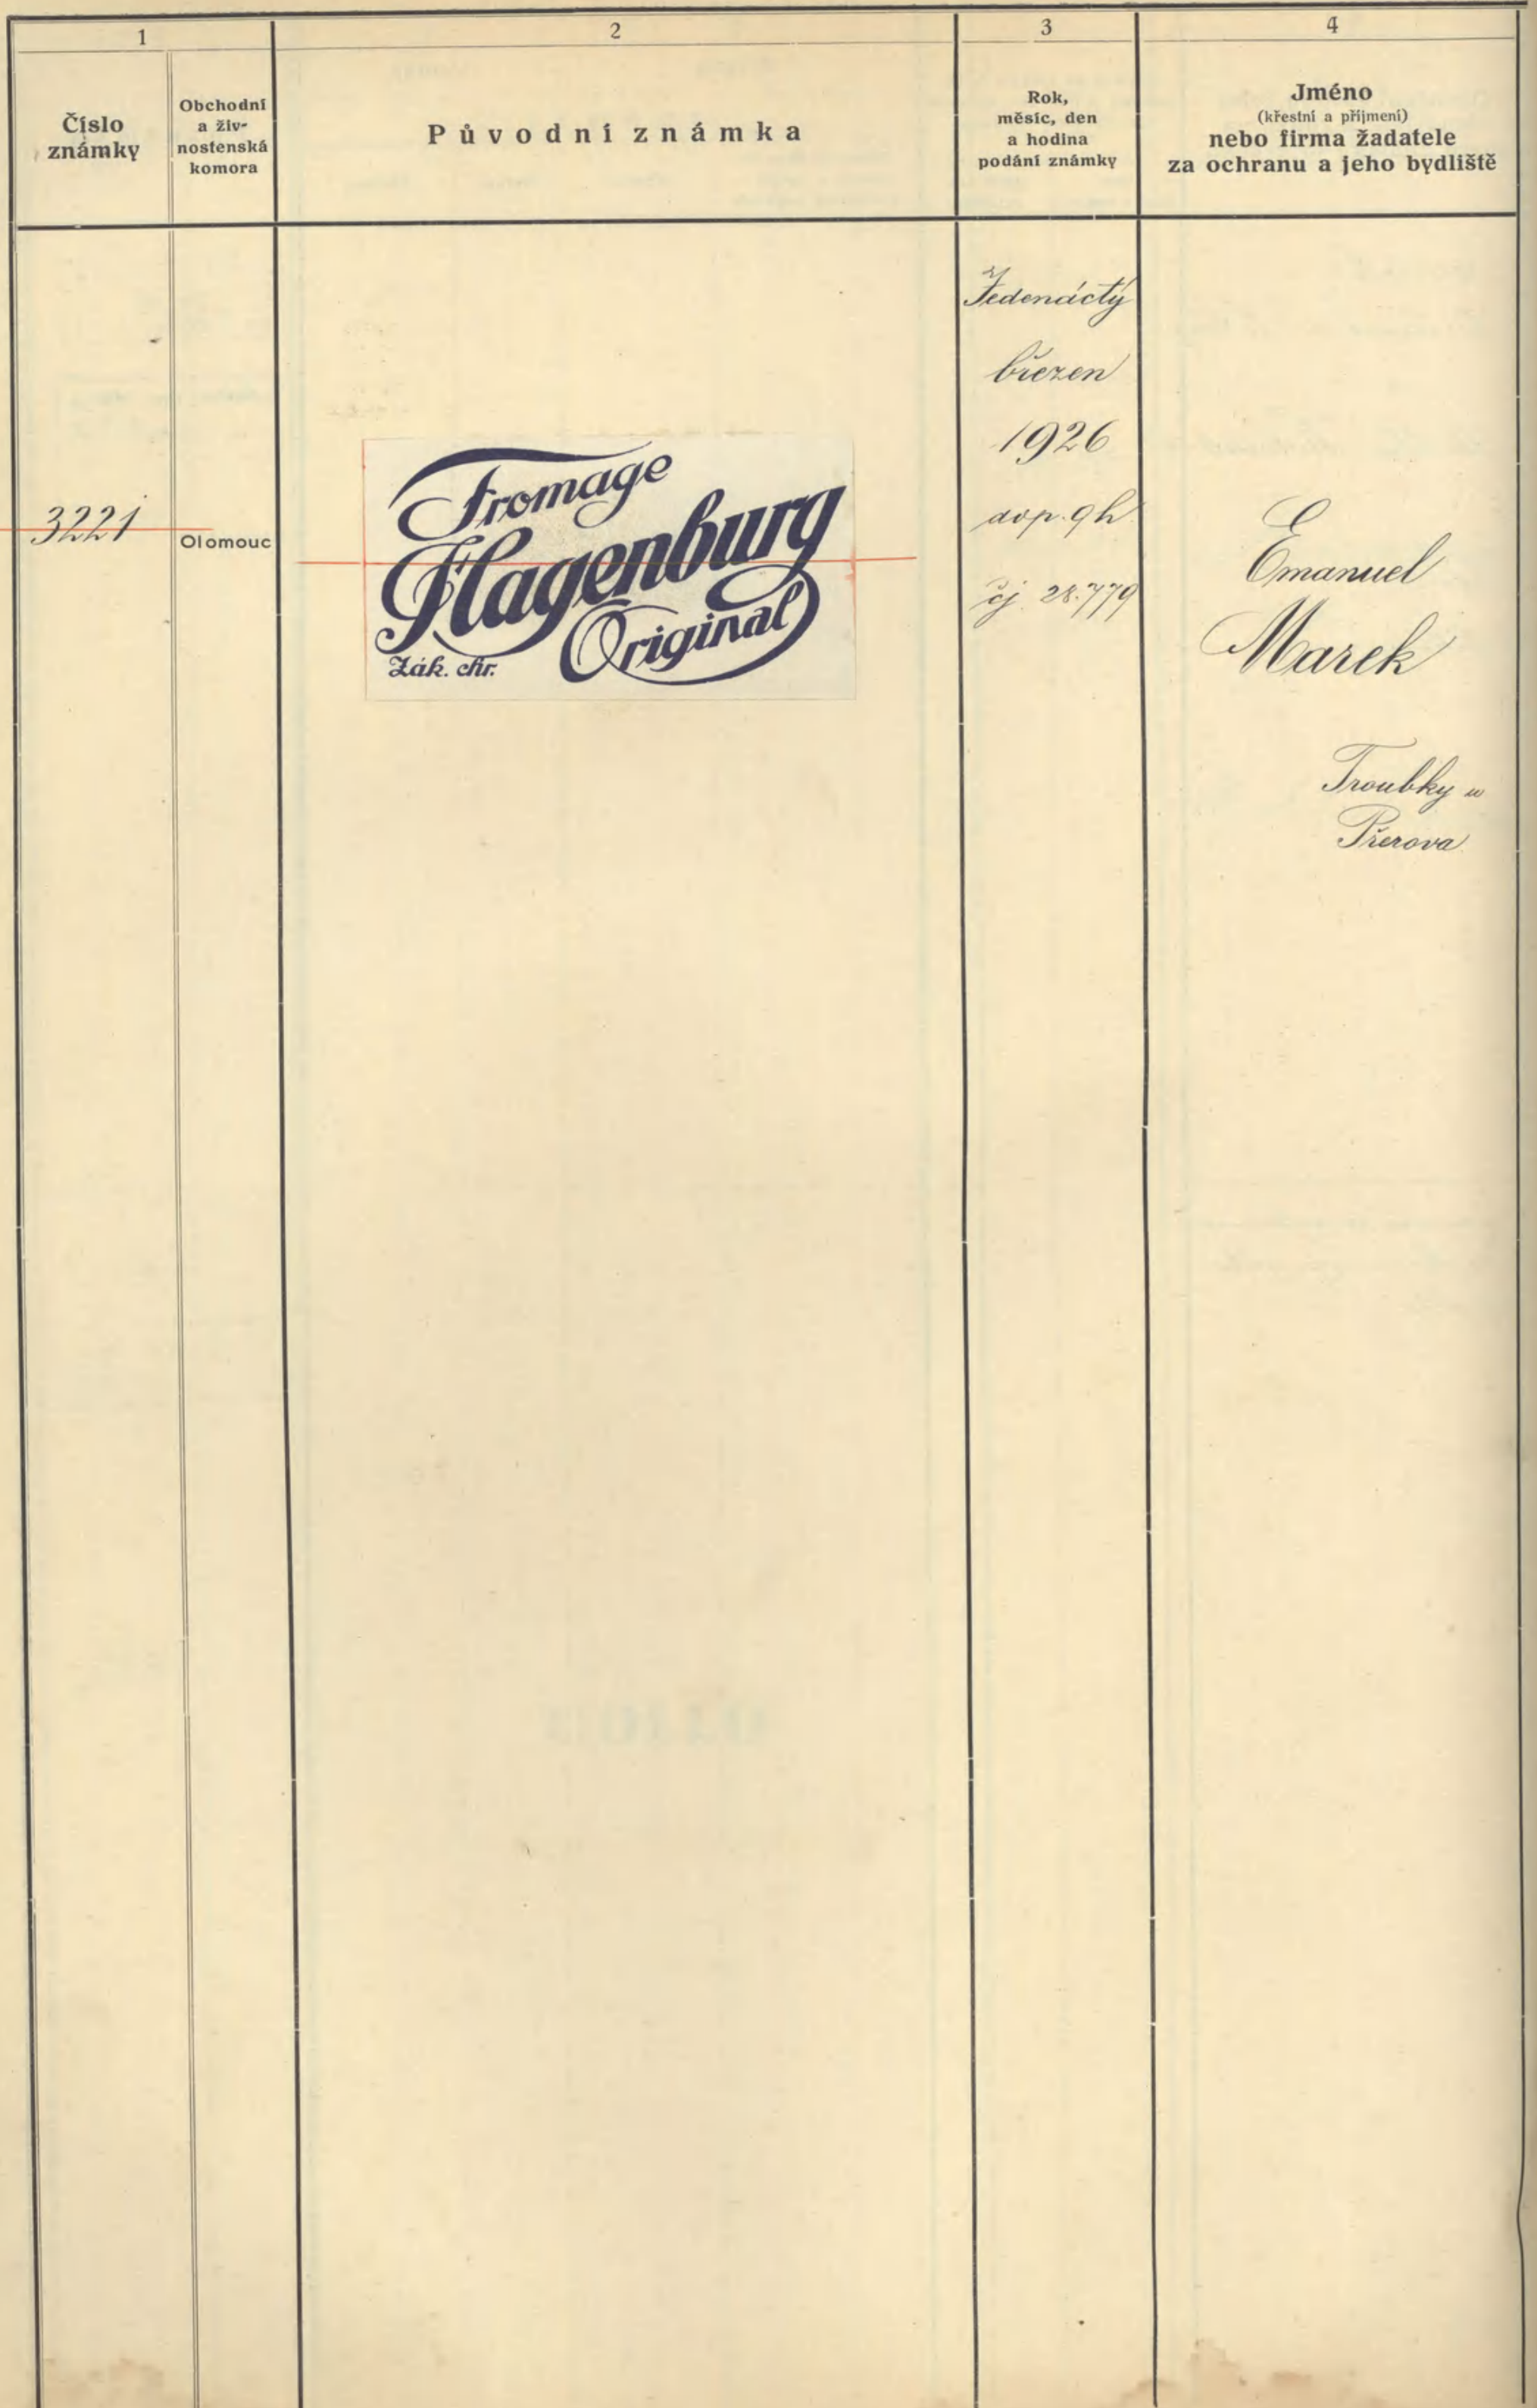 1
2
3
4
Číslo
známky
Obchodní
a živ-
nostenská
komora
Původní známka
Rok,
měsíc, den
a hodina
podání známky
Jméno
(křestní a příjmení)
nebo firma žadatele
za ochranu a jeho bydliště
3221
Olomouc
Fromage
Hagenburg
Original
Zák. chr.
Jedenáctý
březen
1926
dop. 9h
čj. 28.779
Emanuel
Marek
Troubky u
Přerova